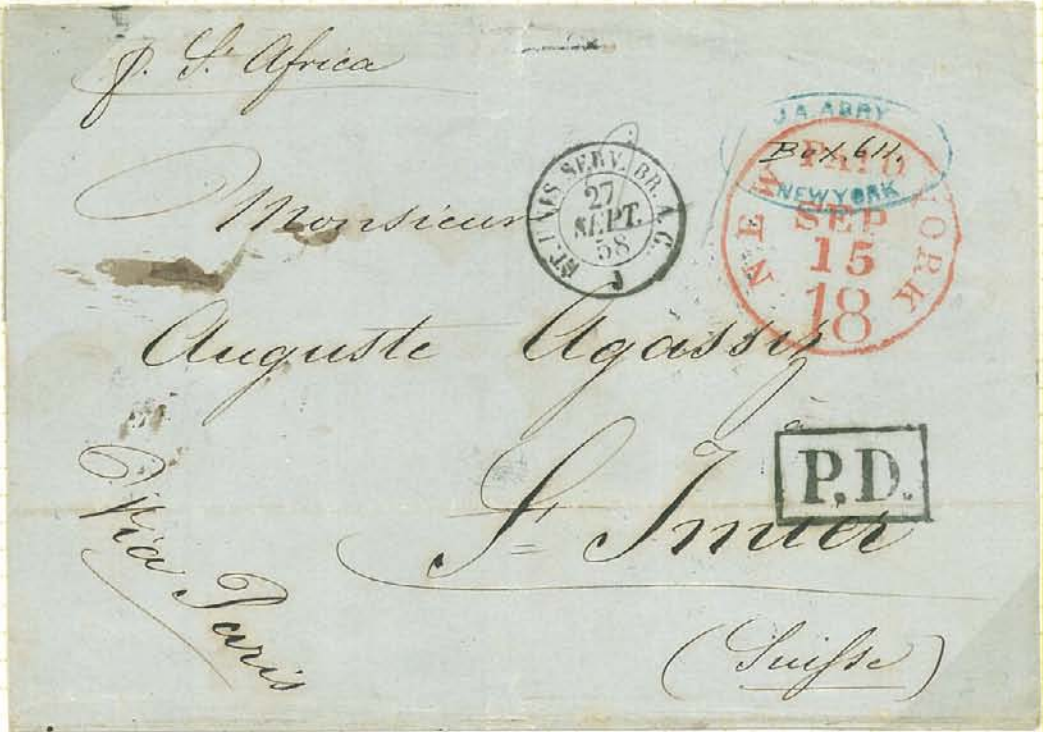 p. St. Africa
J. A. ABRY
Box 611.
NEW YORK
NEW YORK
PAID
SEP
15
18
ET. UNIS SERV. BR. A. C.
27
SEPT.
58
J
Monsieur
Auguste Agassiz
à
P.D.
St = Imier
Via Paris
(Suisse)